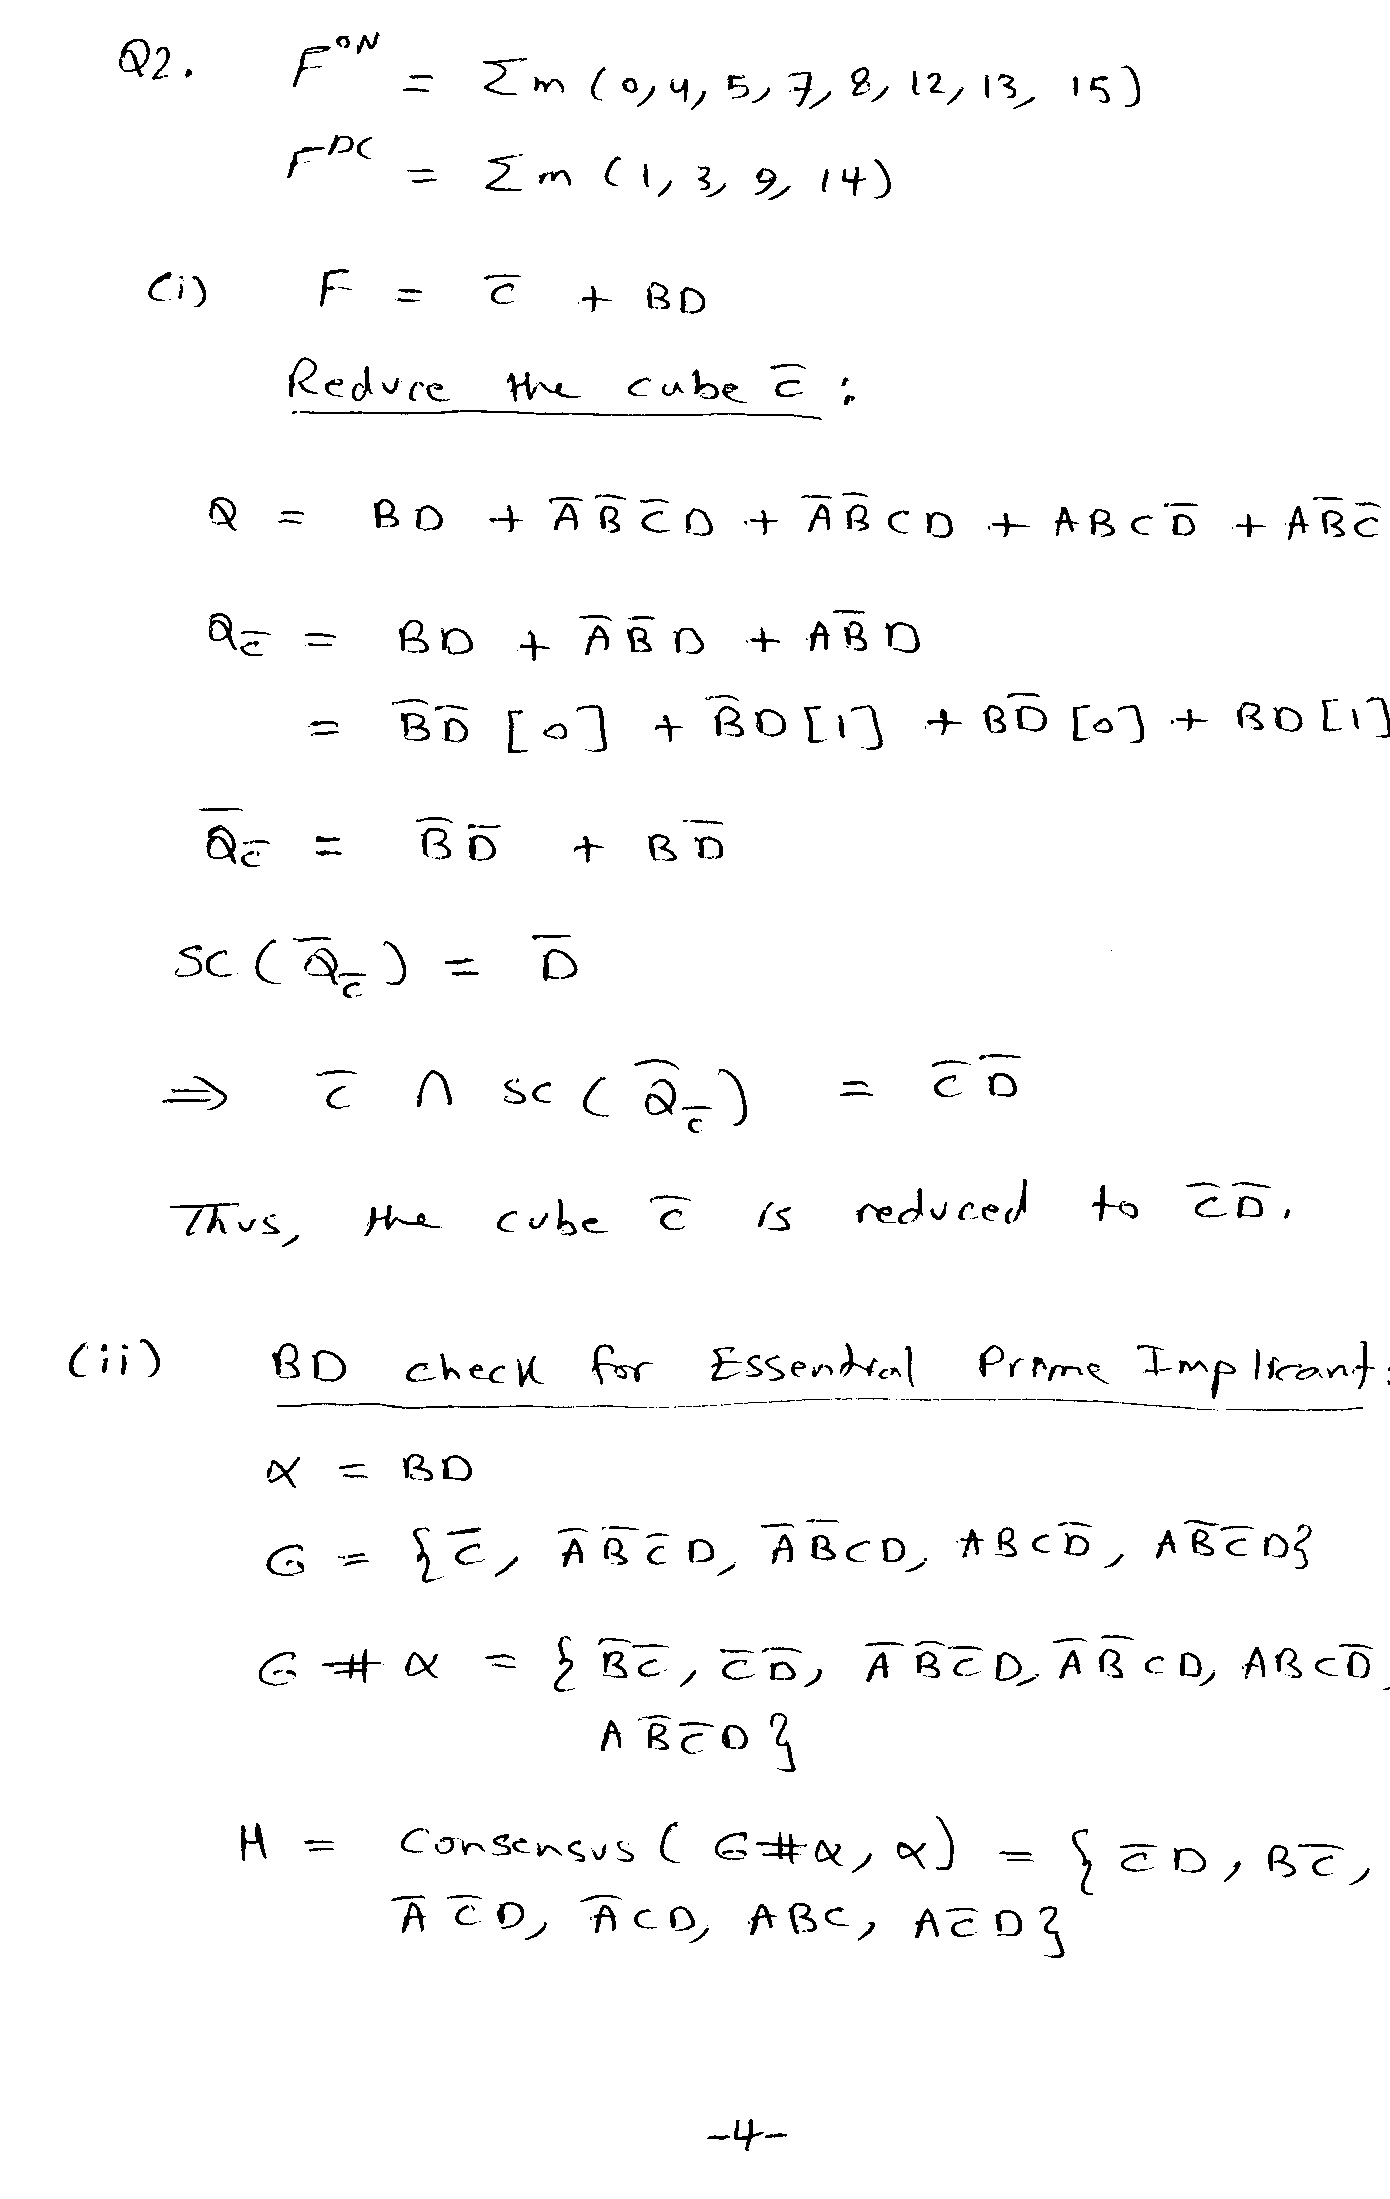 Q2. F^ON = Σm (0, 4, 5, 7, 8, 12, 13, 15)
F^DC = Σm (1, 3, 9, 14)
(i) F = C̅ + BD
Reduce the cube C̅ :
Q = BD + A̅ B̅ C̅ D + A̅ B̅ C D + A B C D̅ + A B̅ C̅
Q_C̅ = BD + A̅ B̅ D + A B̅ D
= B̅ D̅ [0] + B̅ D [1] + B D̅ [0] + B D [1]
Q̅_C̅ = B̅ D̅ + B D̅
SC ( Q̅_C̅ ) = D̅
⇒ C̅ ∩ SC ( Q̅_C̅ ) = C̅ D̅
Thus, the cube C̅ is reduced to C̅ D̅.
(ii) BD check for Essential Prime Implicant:
α = BD
G = { C̅, A̅ B̅ C̅ D, A̅ B̅ C D, A B C D̅, A B̅ C̅ D }
G # α = { B̅ C̅, C̅ D̅, A̅ B̅ C̅ D, A̅ B̅ C D, A B C D̅,
A B̅ C̅ D }
H = Consensus ( G # α, α ) = { C̅ D, B C̅,
A̅ C̅ D, A̅ C D, A B C, A C̅ D }
-4-